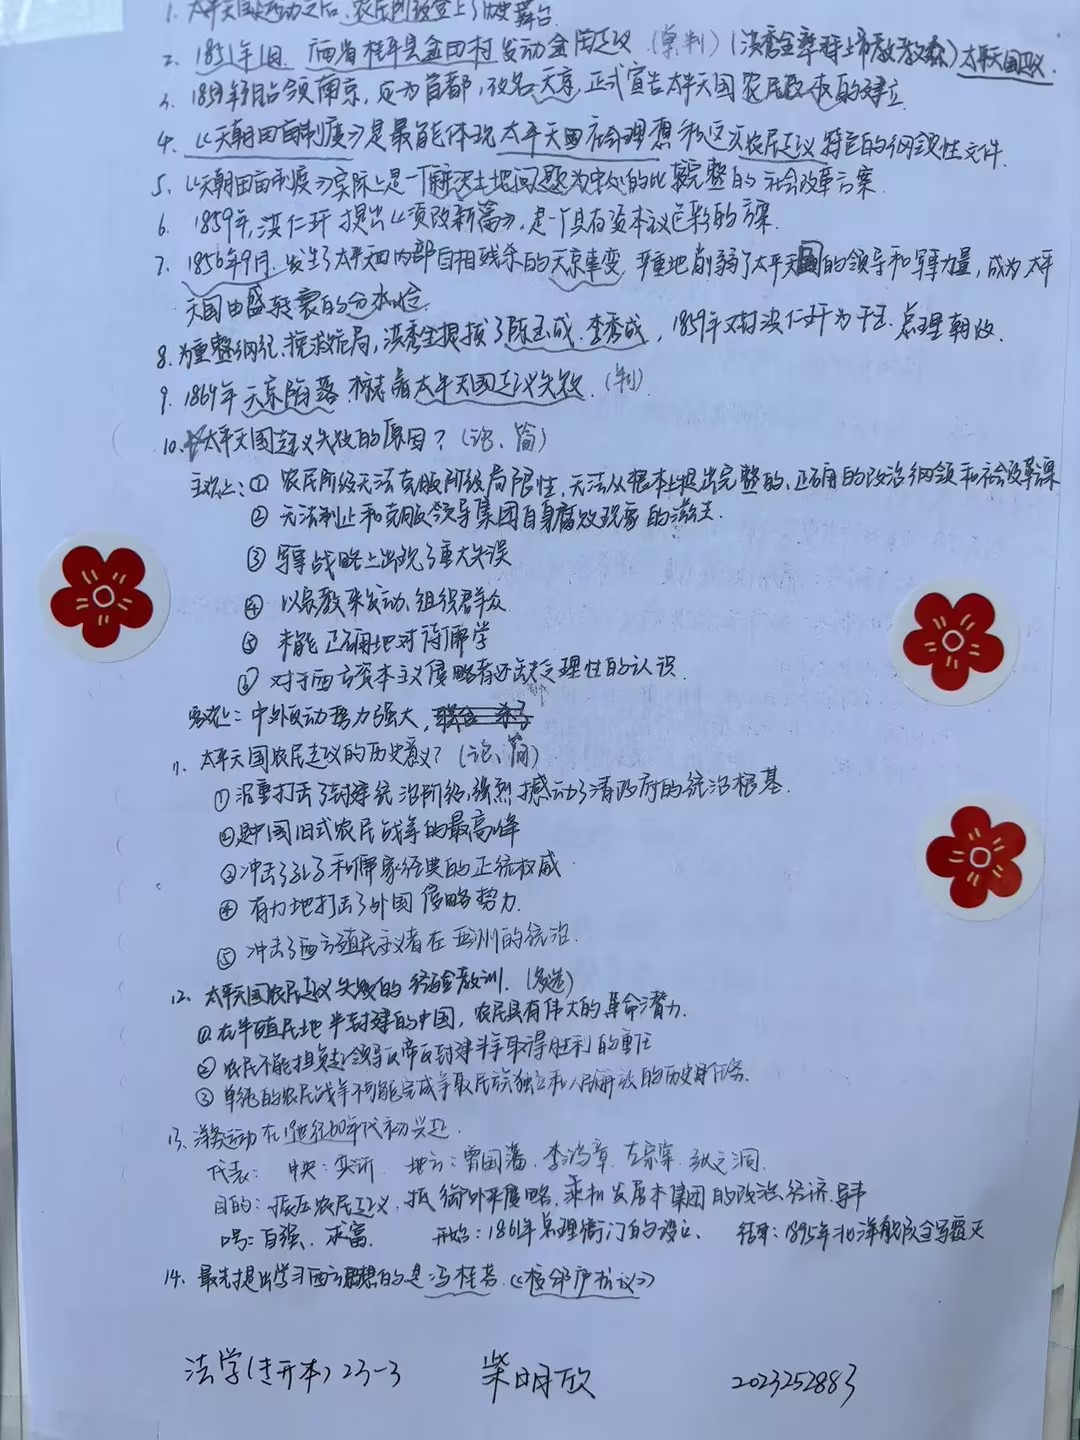 1. 太平天国运动之后,农民阶级登上了历史舞台.
2. 1851年1月,广西省桂平县金田村发动金田起义.(洪秀全率拜上帝教教众)太平天国起义.
3. 1853年3月占领南京,定为首都,改名天京,正式宣告太平天国农民政权的建立.
4. 《天朝田亩制度》是最能体现太平天国社会理想和这次农民起义特色的纲领性文件.
5. 《天朝田亩制度》实际上是一个解决土地问题为中心的比较完整的社会改革方案.
6. 1859年,洪仁玕提出《资政新篇》,是一个具有资本主义色彩的方案.
7. 1856年9月.发生了太平天国内部自相残杀的天京事变,严重地削弱了太平天国的领导和军事力量,成为太平
天国由盛转衰的分水岭.
8. 为重整纲纪,挽救危局,洪秀全提拔了陈玉成.李秀成,1859年又封洪仁玕为干王.总理朝政.
9. 1864年天京陷落.标志着太平天国起义失败.(判)
10. 太平天国起义失败的原因?(论、简)
主观上:① 农民阶级无法克服阶级局限性,无法从根本上提出完整的、正确的政治纲领和社会改革
② 无法制止和克服领导集团自身腐败现象的滋生.
③ 军事战略上出现了重大失误
④ 以宗教来发动、组织群众
⑤ 未能正确地对待儒学
⑥ 对于西方资本主义侵略者还缺乏理性的认识.
客观上:中外反动势力强大,
11. 太平天国农民起义的历史意义?(论、简)
① 沉重打击了封建统治阶级,强烈撼动了清政府的统治根基.
②是中国旧式农民战争的最高峰
③冲击了孔子和儒家经典的正统权威.
④ 有力地打击了外国侵略势力.
⑤ 冲击了西方殖民主义者在亚洲的统治.
12. 太平天国农民起义失败的经验教训.(多选)
①在半殖民地半封建的中国,农民具有伟大的革命潜力.
② 农民不能担负起领导反帝反封建斗争取得胜利的重任
③ 单纯的农民战争不可能完成争取民族独立和人民解放的历史任务.
13. 洋务运动在19世纪60年代初兴起.
代表:中央:奕䜣.地方:曾国藩.李鸿章.左宗棠.张之洞.
目的:镇压农民起义,抵御外来侵略,乘机发展本集团的政治.经济.军事
口号:自强、求富. 开始:1861年总理衙门的设立、 结束:1895年北洋舰队全军覆灭
14. 最先提出学习西方思想的是冯桂芬.《校邠庐抗议》
法学(专升本)23-3 柴明欣 2023252883